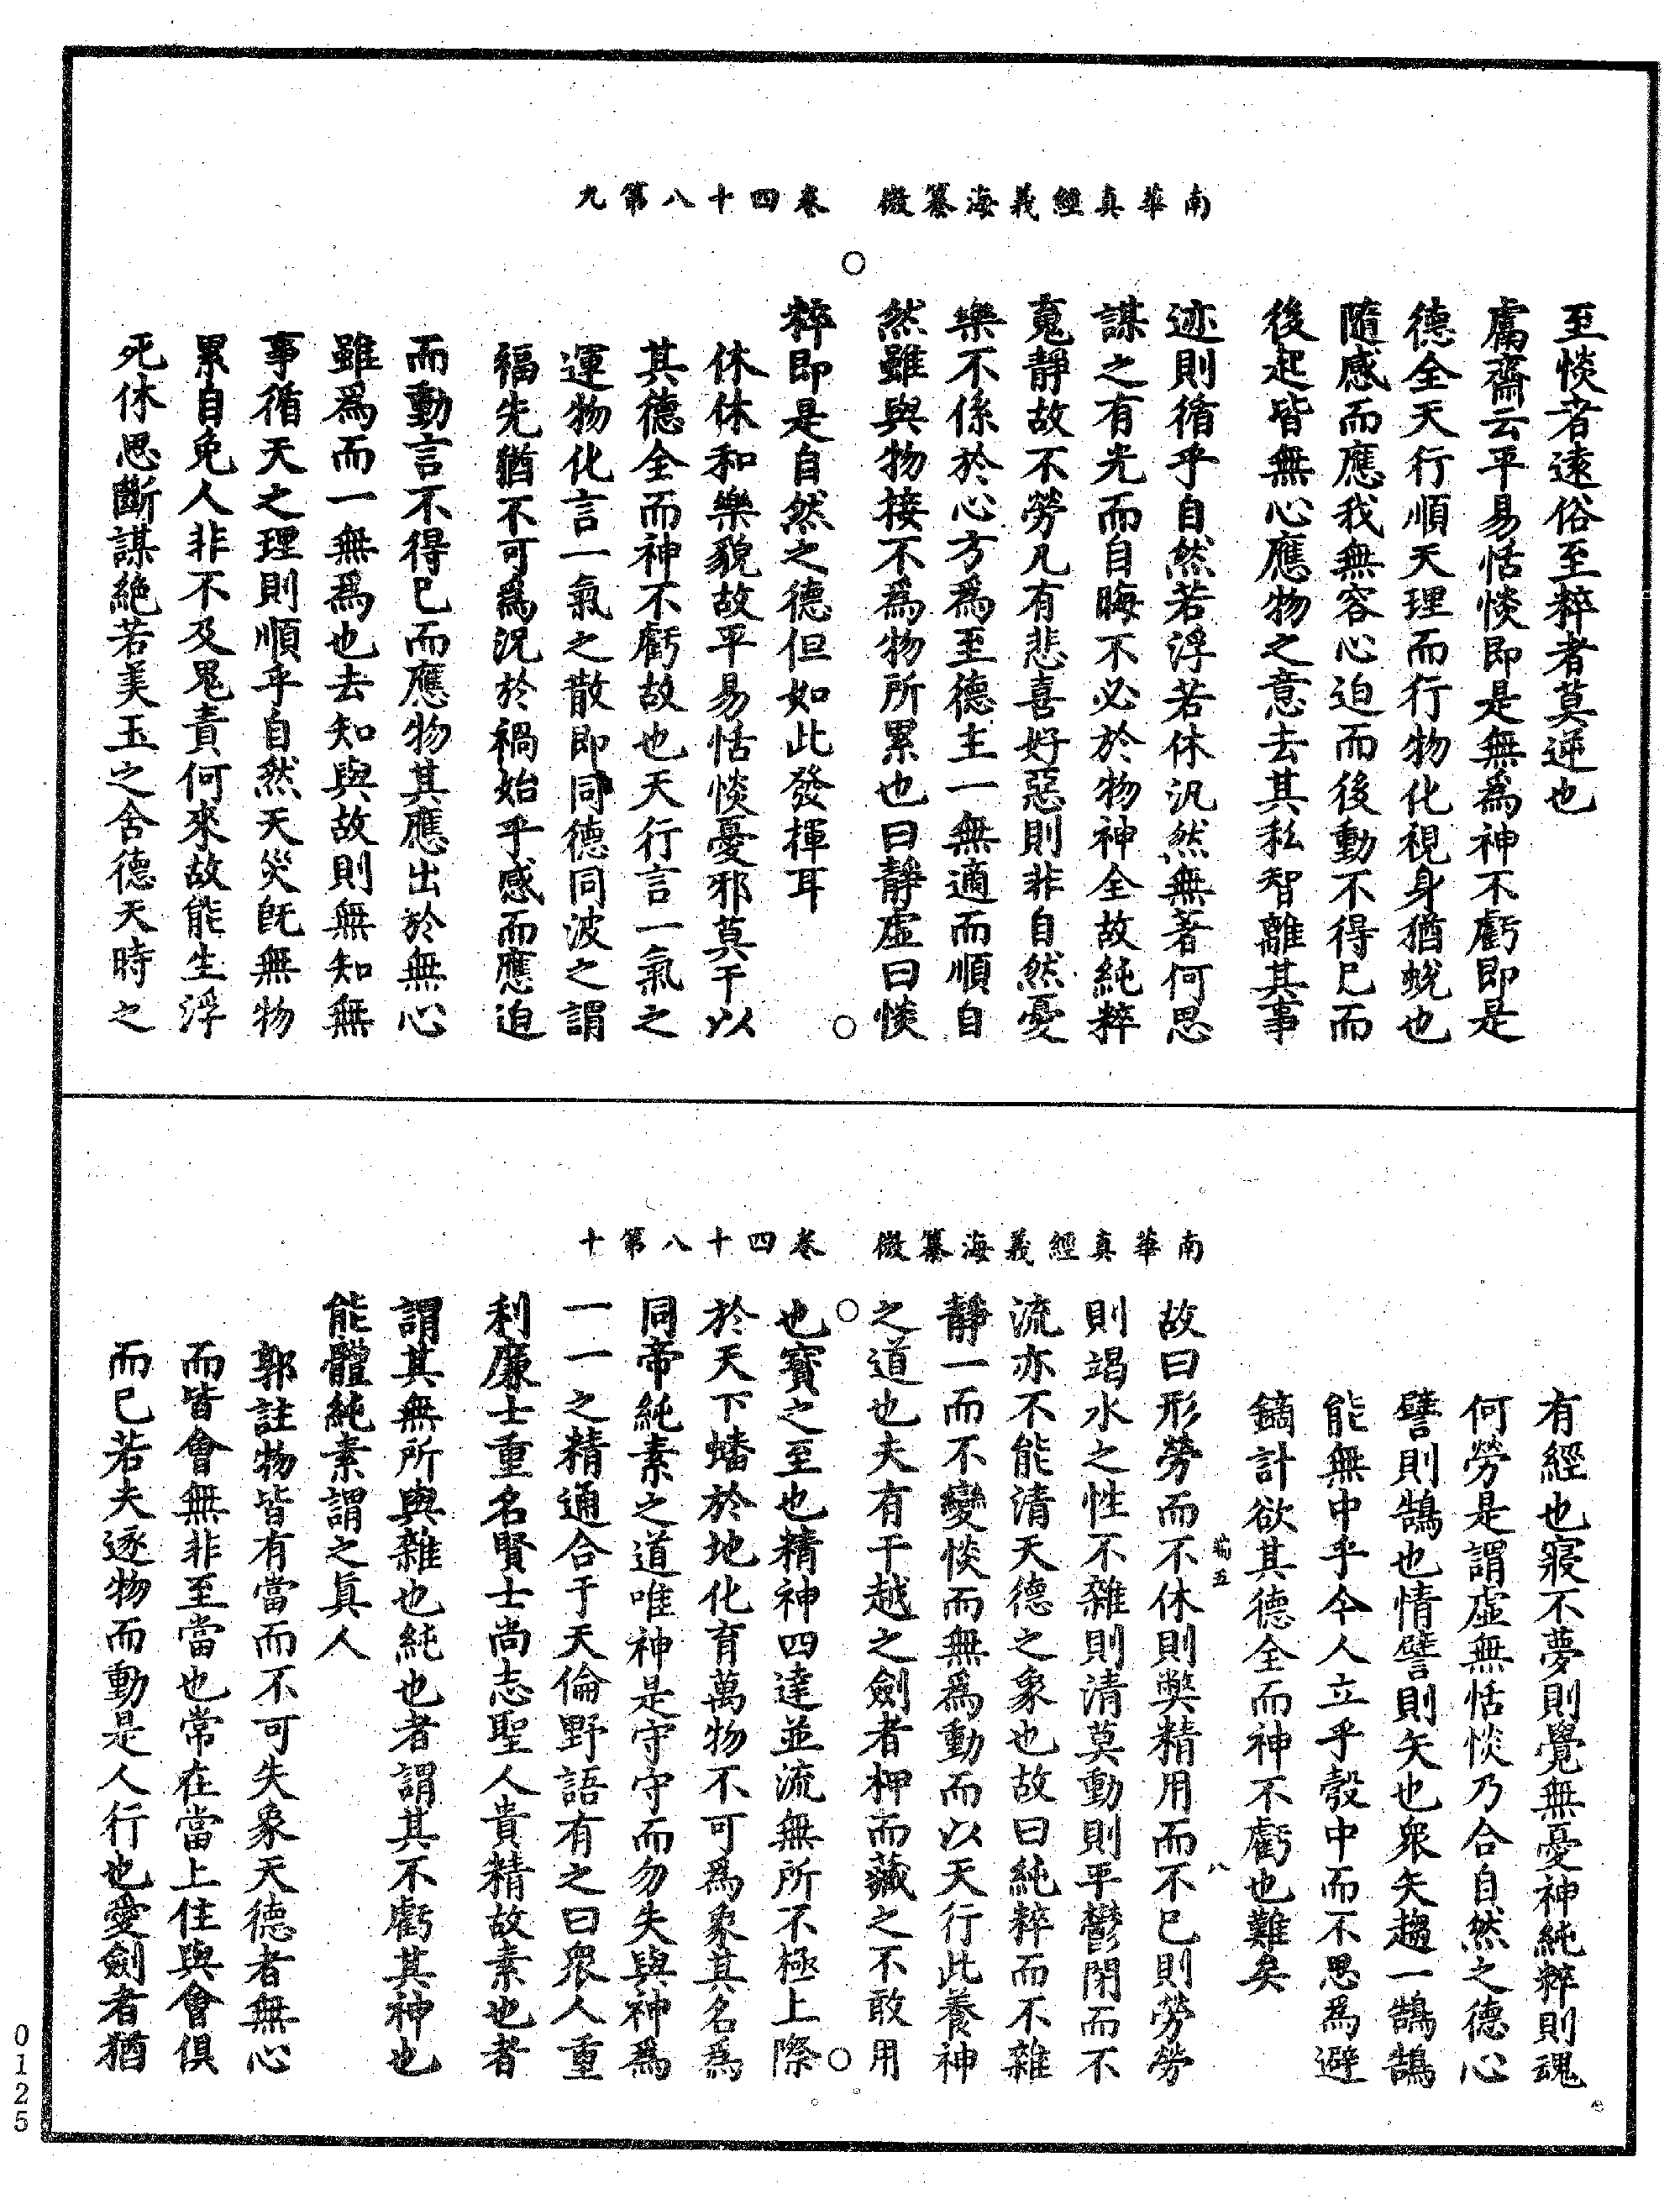 南華真經義海纂微　卷四十八第九
至惔者遠俗至粹者莫逆也
鬳齋云平易恬惔即是無為神不虧即是
德全天行順天理而行物化視身猶蛻也
隨感而應我無容心迫而後動不得已而
後起皆無心應物之意去其私智離其事
迹則循乎自然若浮若休汎然無著何思
謀之有光而自晦不必於物神全故純粹
䰟靜故不勞凡有悲喜好惡則非自然憂
樂不係於心方為至德主一無適而順自
然雖與物接不為物所累也曰靜虛曰惔
粹即是自然之德但如此發揮耳
休休和樂貌故平易恬惔憂邪莫干以
其德全而神不虧故也天行言一氣之
運物化言一氣之散即同德同波之謂
福先猶不可為況於禍始乎感而應迫
而動言不得已而應物其應出於無心
雖為而一無為也去知與故則無知無
事循天之理則順乎自然天災既無物
累自免人非不及鬼責何來故能生浮
死休思斷謀絕若美玉之含德天時之
南華真經義海纂微　卷四十八第十
有經也寢不夢則覺無憂神純粹則魂
何勞是謂虛無恬惔乃合自然之德心
譬則鵠也情譬則矢也衆矢趨一鵠鵠
能無中乎今人立乎彀中而不思為避
鏑計欲其德全而神不虧也難矣
故曰形勞而不休則獘精用而不已則勞勞
則竭水之性不雜則清莫動則平鬱閉而不
流亦不能清天德之象也故曰純粹而不雜
靜一而不變惔而無為動而以天行此養神
之道也夫有干越之劍者柙而藏之不敢用
也寶之至也精神四達並流無所不極上際
於天下蟠於地化育萬物不可為象其名為
同帝純素之道唯神是守守而勿失與神為
一一之精通合于天倫野語有之曰衆人重
利廉士重名賢士尚志聖人貴精故素也者
謂其無所與雜也純也者謂其不虧其神也
能體純素謂之真人
郭註物皆有當而不可失象天德者無心
而皆會無非至當也常在當上住與會俱
而已若夫逐物而動是人行也愛劍者猶
八
0125